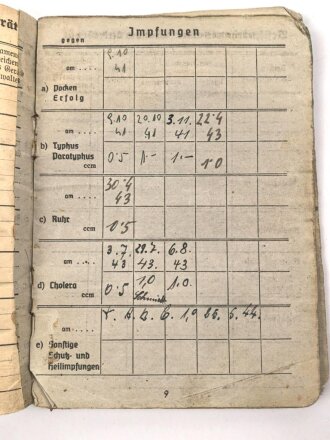 Impfungen
gegen
9.10
am . . . . 41
a) Pocken
Erfolg
9.10 20.10 3.11. 22.4
am . . . . 41 41 41 43
b) Typhus
Paratyphus
ccm 0.5 1.- 1.- 1.0
30.4
am . . . . 43
c) Ruhr
ccm 0.5
3.7. 29.7. 6.8.
am . . . . 43 43. 43
d) Cholera 1,0 1.0
ccm 0.5
am . . . . 1,0 26. 5. 44.
e) Sonstige
Schutz- und
Heilimpfungen
9